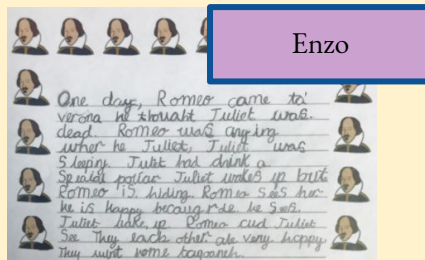 Enzo
One day, Romeo came to
verona he thought Juliet was
dead. Romeo was
when he Juliet, Juliet was
Sleeping. Juliet had drink a
Juliet wakes up but
Romeo is hiding. Romeo sees her
he is happy he sees.
Juliet wake up Romeo Juliet
See They each other are very happy
They home